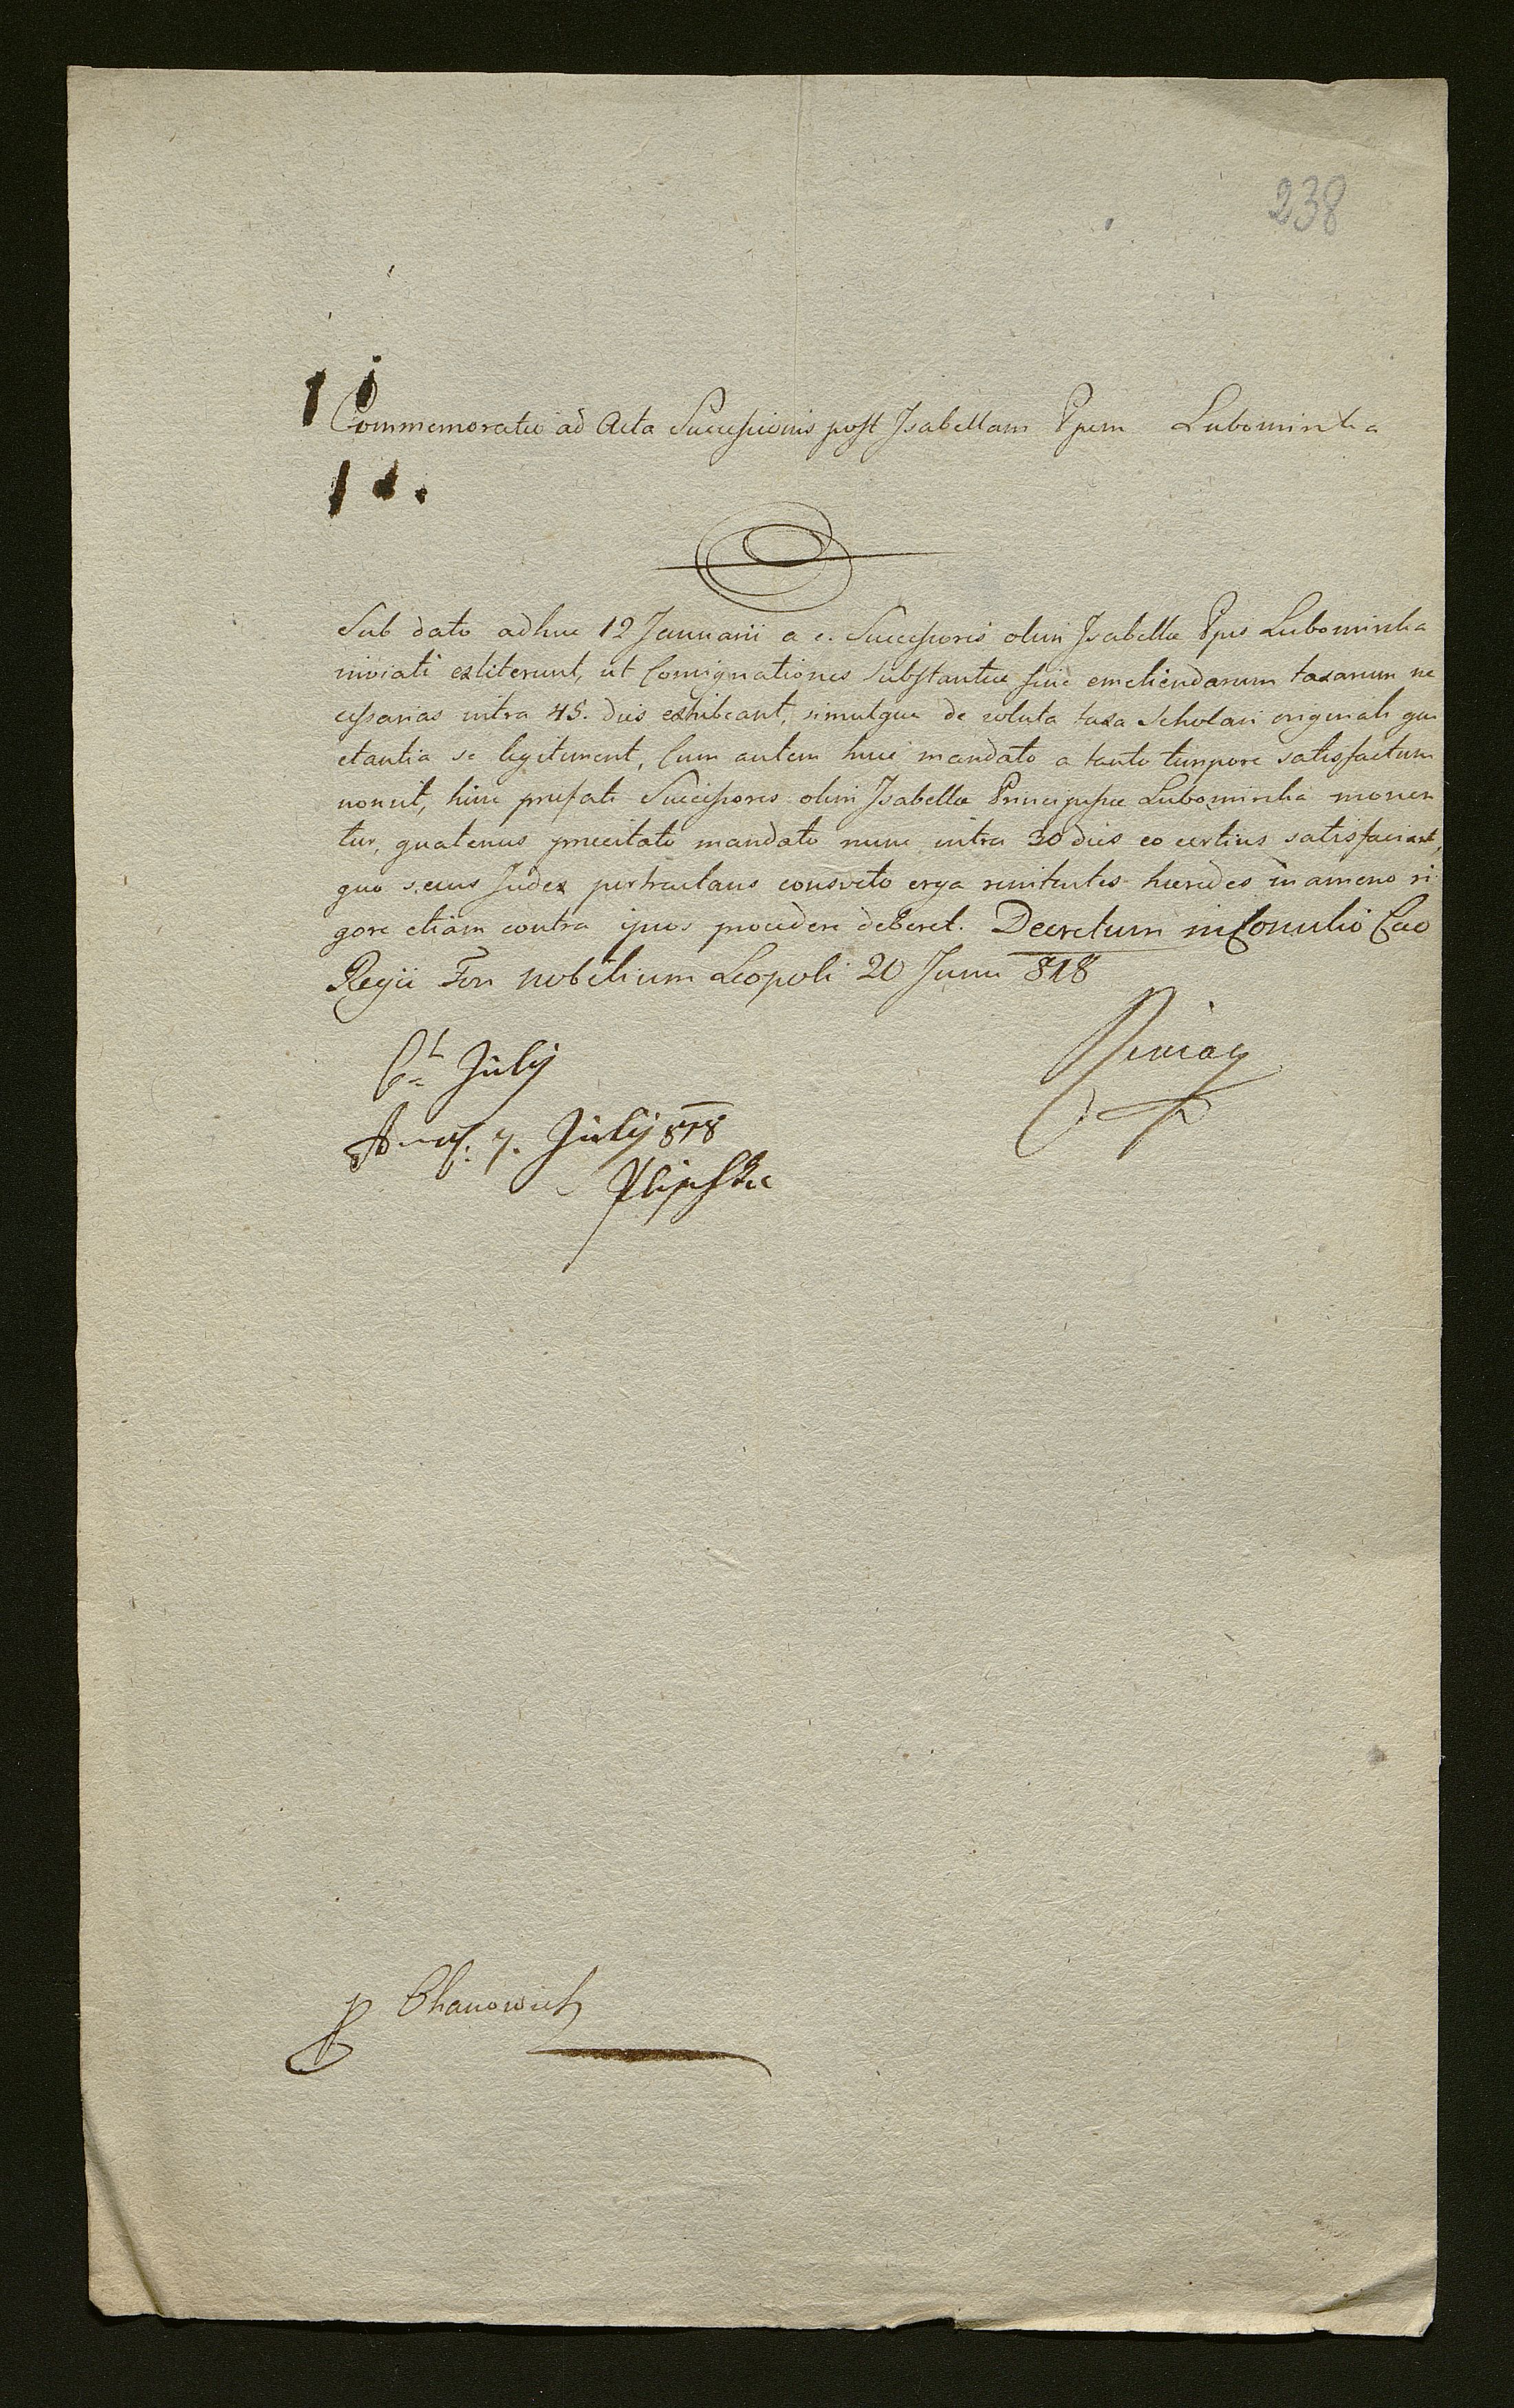 238
Commemoratio ad Acta Successionis post Isabellam Ppem Lubomirska
Sub dato adhuc 12 Januarii a c. Successores olim Isabellæ Ppis Lubomirska
inviati extiterunt, ut Consignationes substantiæ fine emetiendarum taxarum ne
cessarias intra 45. dies exhibeant, simulque de soluta taxa Scholari originali qui
etantia se legitiment, Cum autem huic mandato a tanto tempore satisfactum
non sit, hinc præfati Successores olim Isabellæ Principissæ Lubomirska monen
tur, quatenus præcitato mandato nunc intra 30 dies eo certius satisfaciant,
quo secus Judex pertractans consveto erga renitentes hæredes in ameno ri
gore etiam contra ipsos procedere deberet. Decretum in Consilio Cæo
Regii Fori Nobilium Leopoli 20 Junii 818
July
7. July 818